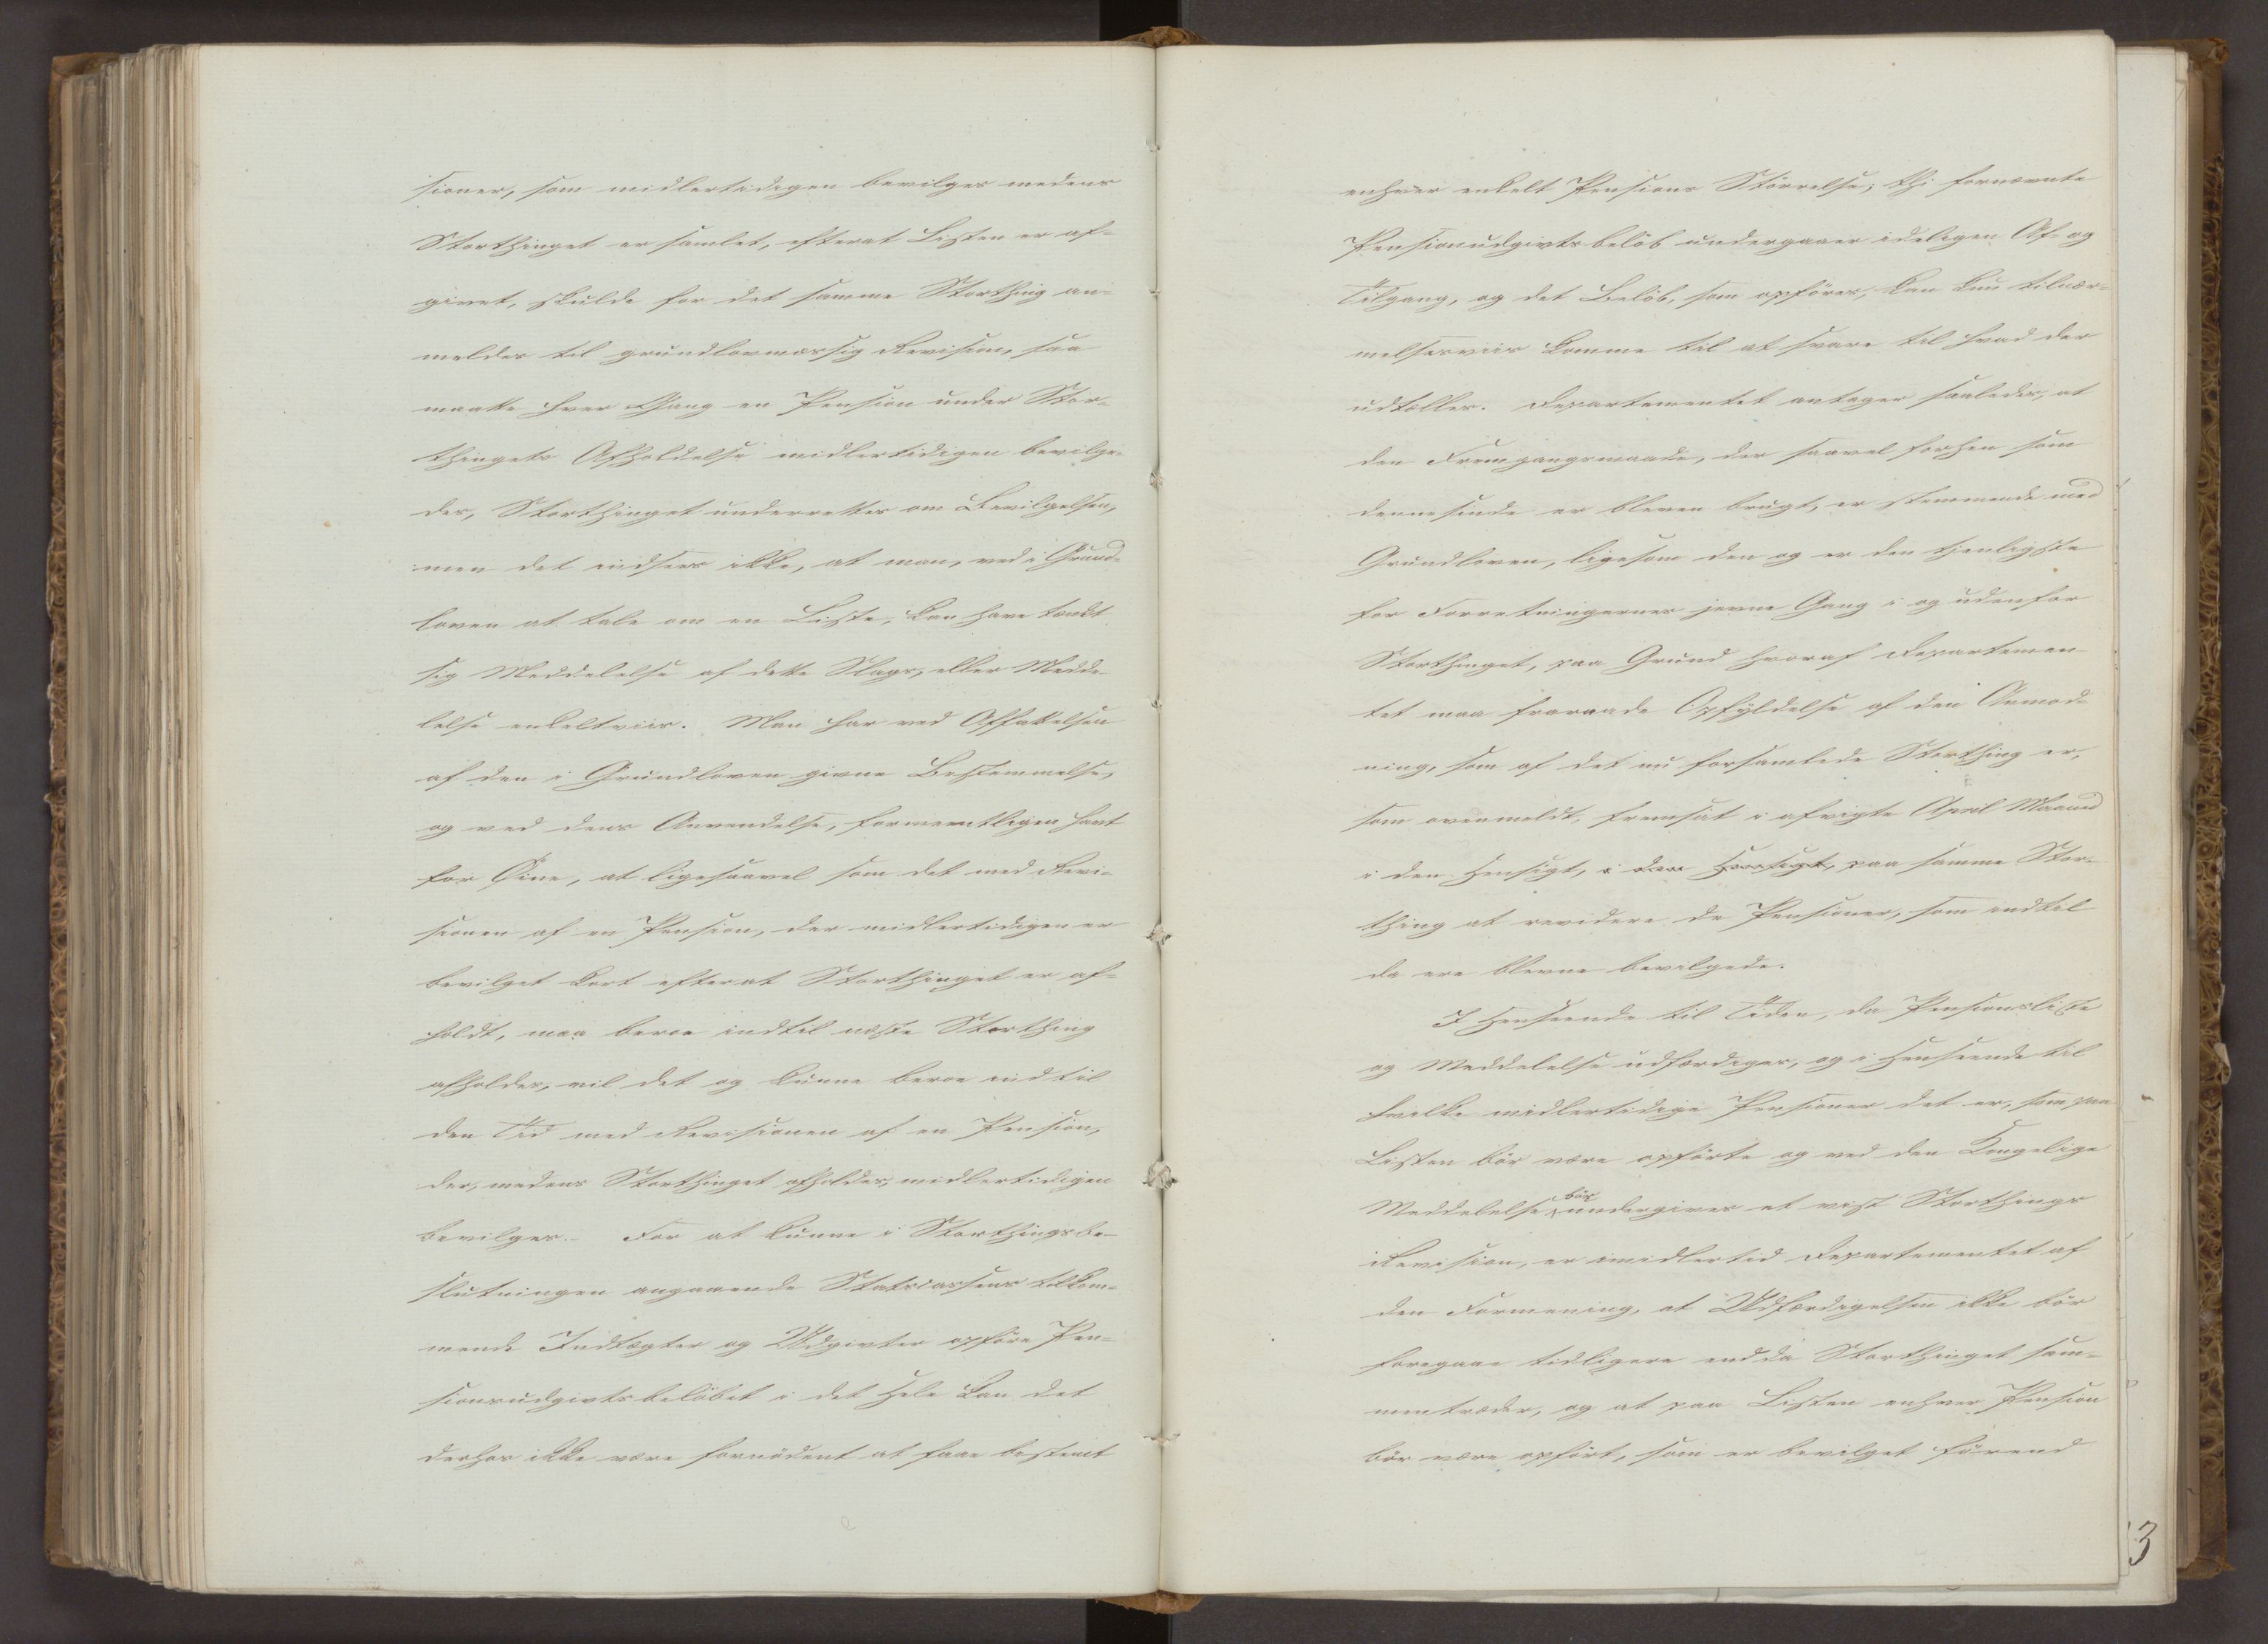 sioner, som midlertidigen bevilges medens
Storthinget er samlet, efterat Listen er af-
givet, skulde for det samme Storthing an-
meldes til grundlovmæssig Revision, saa
maatte hver Gang en Pension under Stor-
thingets Afholdelse midlertidigen bevilge-
des, Storthinget underrettes om Bevilgelsen,
men det indsees ikke, at man, ved i Grund-
loven at tale om en Liste, kan have tænkt
sig Meddelelse af dette Slags, eller Medde-
lelse enkeltviis. Man har ved Affattelsen
af den i Grundloven givne Bestemmelse,
og ved dens Anvendelse, formeentligen havt
for Öine, at ligesaavel som det med Revi-
sionen af en Pension, der midlertidigen er
bevilget kort efterat Storthinget er af-
holdt, maa beroe indtil næste Storthing
afholdes, vil det og kunne beroe indtil
den Tid med Revisionen af en Pension,
der, medens Storthinget afholdes, midlertidigen
bevilges. For at kunne i Storthingsbe-
slutningen angaaende Statscassens tilkom-
mende Indtægter og Udgivter opföre Pen-
sionsudgivtsbelöbet i det Hele kan det
derhos ikke være fornödent at faae bestemt
enhver enkelt Pensions Störrelse; thi fornævnte
Pensionsudgivtsbelöb undergaaer ideligen Af- og
Tilgang, og det Belöb, som opföres, kan kun tilnær-
melsesviis komme til at svare til hvad der
udtælles. Departementet antager saaledes, at
den Fremgangsmaade, der saavel forhen som
dennesinde er bleven brugt, er stemmende med
Grundloven, ligesom den og er den tjenligste
for Forretningernes jevne Gang i og udenfor
Storthinget, paa Grund hvoraf Departemen-
tet maa fraraade Opfyldelse af den Anmod-
ning, som af det nu forsamlede Storthing er,
som ovenmeldt, fremsat i afvigte April Maaned
i den Hensigt, i den Hensigt, paa samme Stor-
thing at revidere de Pensioner, som indtil
da ere blevne bevilgede.
I Henseende til Tiden, da Pensionsliste
og Meddelelse udfærdiges, og i Henseende til
hvilke midlertidige Pensioner det er, som paa
Listen bör være opförte og ved den Kongelige
Meddelelse bör undergives et vist Storthings
Revision, er imidlertid Departementet af
den Formening, at Udfærdigelsen ikke bör
foregaae tidligere end da Storthinget sam-
mentræder, og at paa Listen enhver Pension
bör være opfört, som er bevilget förend